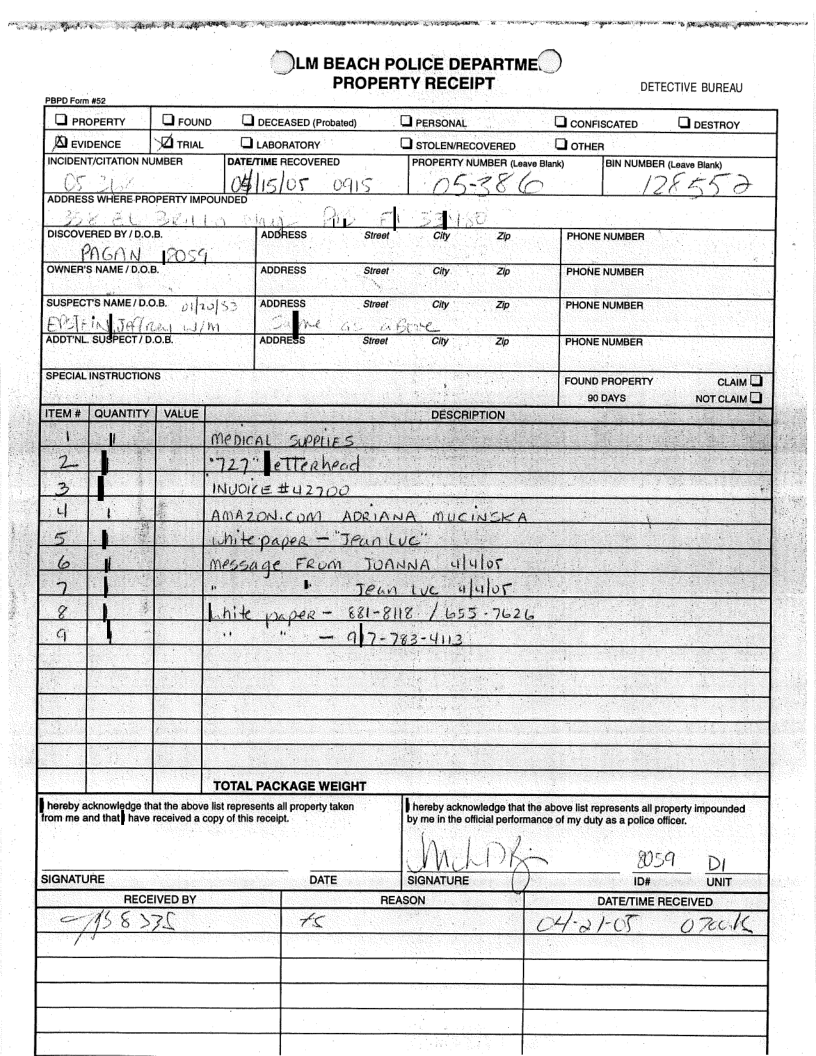 LM BEACH POLICE DEPARTME
PROPERTY RECEIPT
DETECTIVE BUREAU
PBPD Form #52
PROPERTY FOUND DECEASED (Probated) PERSONAL CONFISCATED DESTROY
EVIDENCE TRIAL LABORATORY STOLEN/RECOVERED OTHER
INCIDENT/CITATION NUMBER DATE/TIME RECOVERED PROPERTY NUMBER (Leave Blank) BIN NUMBER (Leave Blank)
05 368 04/15/05 0915 05-386 128552
ADDRESS WHERE PROPERTY IMPOUNDED
358 EL Brillo Way PB Fl 33480
DISCOVERED BY / D.O.B. ADDRESS Street City Zip PHONE NUMBER
PAGAN 8059
OWNER'S NAME / D.O.B. ADDRESS Street City Zip PHONE NUMBER
SUSPECT'S NAME / D.O.B. 01/20/53 ADDRESS Street City Zip PHONE NUMBER
EPSTEIN, Jeffrey W/M Same as above
ADDT'NL. SUSPECT / D.O.B. ADDRESS Street City Zip PHONE NUMBER
SPECIAL INSTRUCTIONS FOUND PROPERTY CLAIM
90 DAYS NOT CLAIM
ITEM # QUANTITY VALUE DESCRIPTION
1 MEDICAL SUPPLIES
2 "727" Letterhead
3 INVOICE #42700
4 1 AMAZON.COM ADRIANA MUCINSKA
5 white paper - "Jean Luc"
6 message FROM JOANNA 4/4/05
7 " " Jean Luc 4/4/05
8 white paper - 881-8118 / 655-7626
9 " " - 917-783-4113
TOTAL PACKAGE WEIGHT
I hereby acknowledge that the above list represents all property taken
from me and that I have received a copy of this receipt.
I hereby acknowledge that the above list represents all property impounded
by me in the official performance of my duty as a police officer.
8059 DI
SIGNATURE DATE SIGNATURE ID# UNIT
RECEIVED BY REASON DATE/TIME RECEIVED
04-21-05